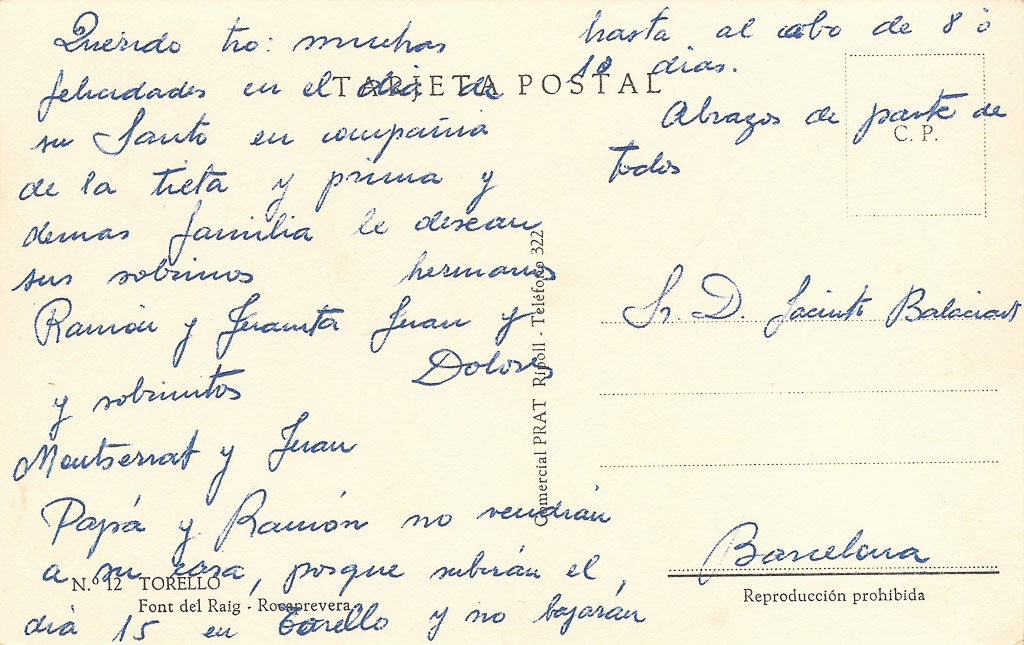 Querido tio: muchas
felicidades en el dia de
su Santo en compañia
de la tieta y prima y
demas familia le desean
sus sobrinos hermanos
Ramón y Juanita Juan y
Dolores
y sobrinitos
Montserrat y Juan
Papá y Ramón no vendrán
a su casa, porque subirán el
dia 15 en Torello y no bajarán
hasta al cabo de 8 ó
10 dias.
Abrazos de parte de
todos
TARJETA POSTAL
C. P.
Sr. D. Jacinto
Barcelona
Reproducción prohibida
Comercial PRAT Ripoll - Teléfono 322
N.º 12 TORELLO
Font del Raig - Rocaprevera